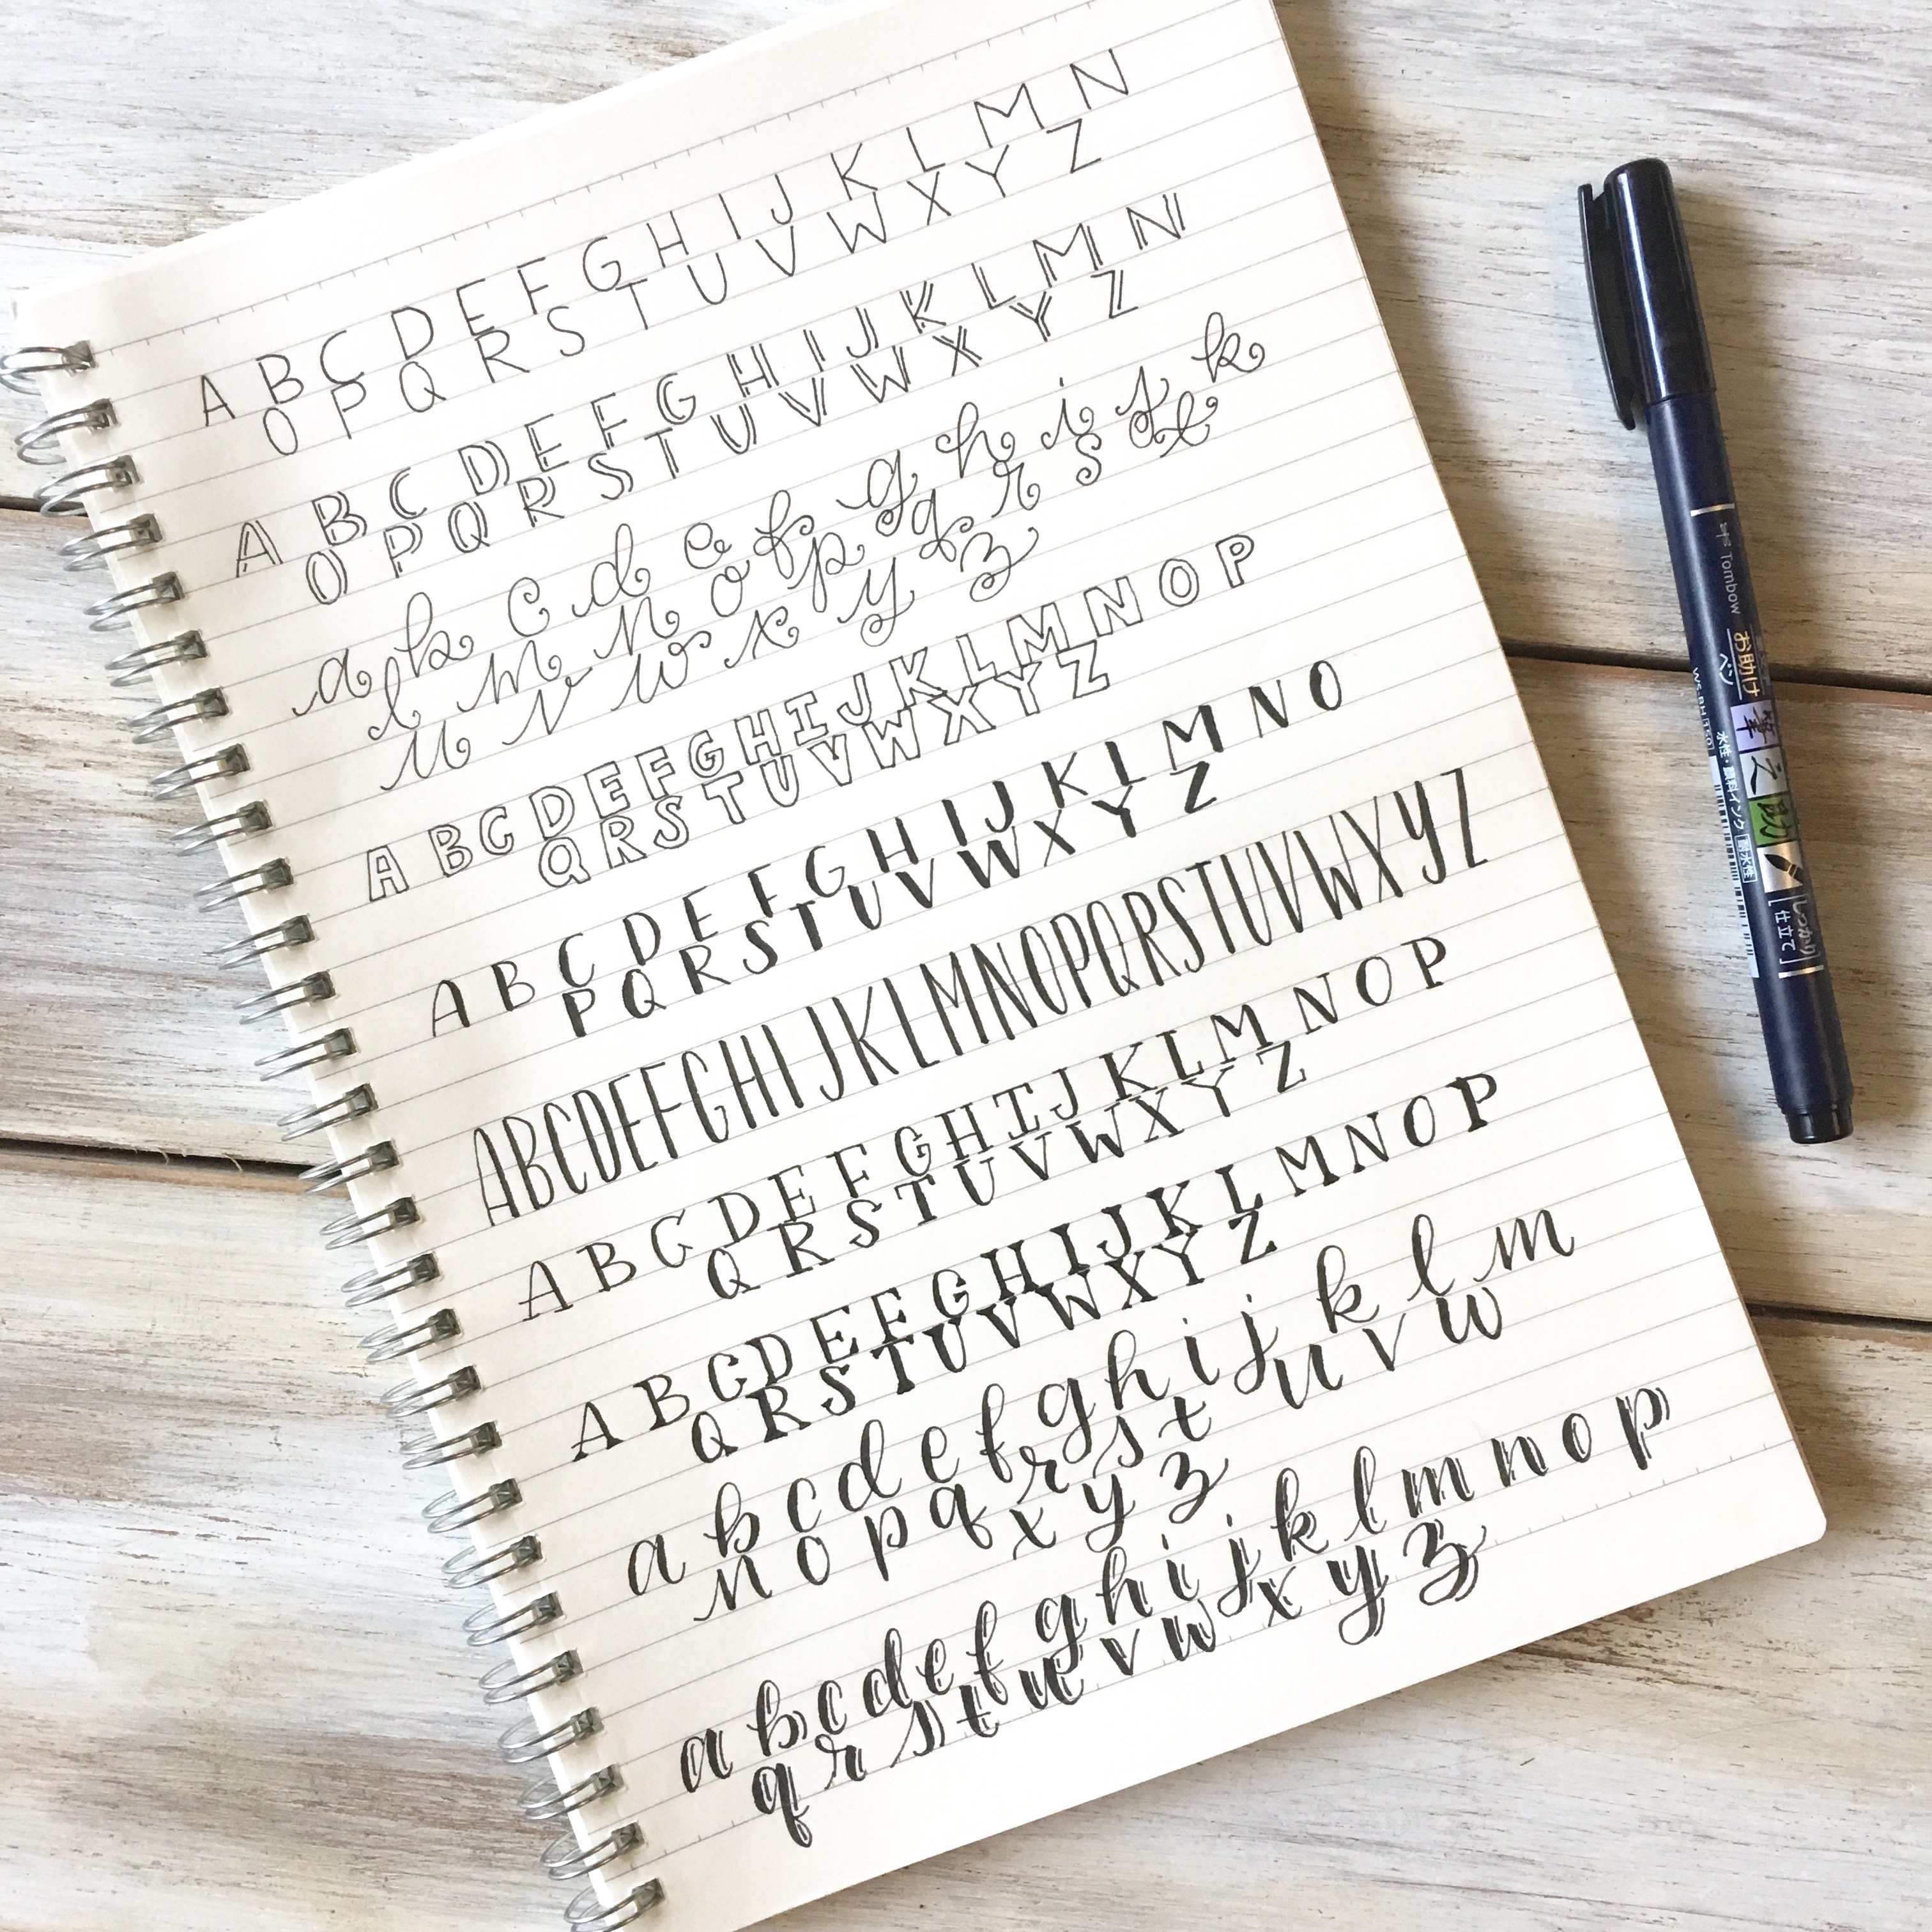 A B C D E F G H I J K L M N
O P Q R S T U V W X Y Z
A B C D E F G H I J K L M N
O P Q R S T U V W X Y Z
a b c d e f g h i j k
l m n o p q r s t
u v w x y z
A B C D E F G H I J K L M N O P
Q R S T U V W X Y Z
A B C D E F G H I J K L M N O
P Q R S T U V W X Y Z
ABCDEFGHIJKLMNOPQRSTUVWXYZ
A B C D E F G H I J K L M N O P
Q R S T U V W X Y Z
A B C D E F G H I J K L M N O P
Q R S T U V W X Y Z
a b c d e f g h i j k l m
n o p q r s t u v w
x y z
a b c d e f g h i j k l m n o p
q r s t u v w x y z
Tombow
お助け
ペン
筆之助
しっかり
仕立て